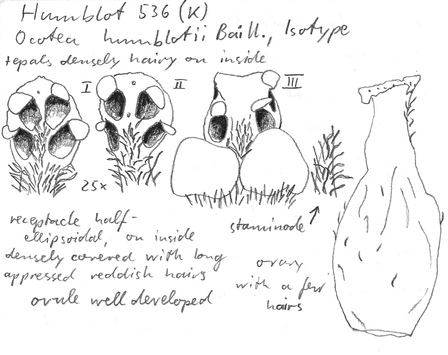 Humblot 536 (K)
Ocotea humblotii Baill., Isotype
tepals densely hairy on inside
I
II
III
25x
receptacle half-
ellipsoidal, on inside
densely covered with long
appressed reddish hairs
ovule well developed
staminode
ovary
with a few
hairs